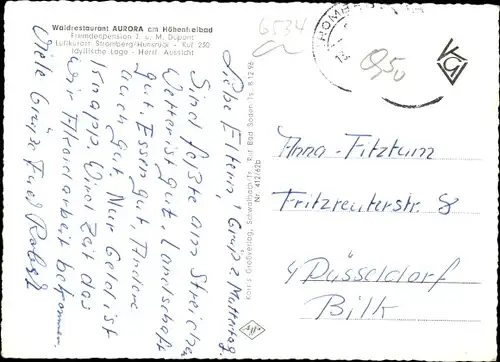 Waldrestaurant AURORA am Höhenfreibad
Fremdenpension J. u. M. Dupont
Luftkurort Stromberg/Hunsrück - Ruf 250
Idyllische Lage - Herrl. Aussicht
6534
HOMB
0,50
Liebe Eltern,
Gruß z. Muttertag.
Sind feste am Streichen
Wetter ist gut. Landschaft
gut. Essen gut. Andere
auch gut. Nur Geld ist
knapp. Und Zeit das
wir Akordarbeit bekommen.
Viele Grüße
Karl's Großverlag, Schwalbach/Ts., Ruf Bad Soden Ts. 8 12 96
Nr. 412/62b
Anna Fitztum
Fritzreuterstr. 8
4 Düsseldorf
Bilk